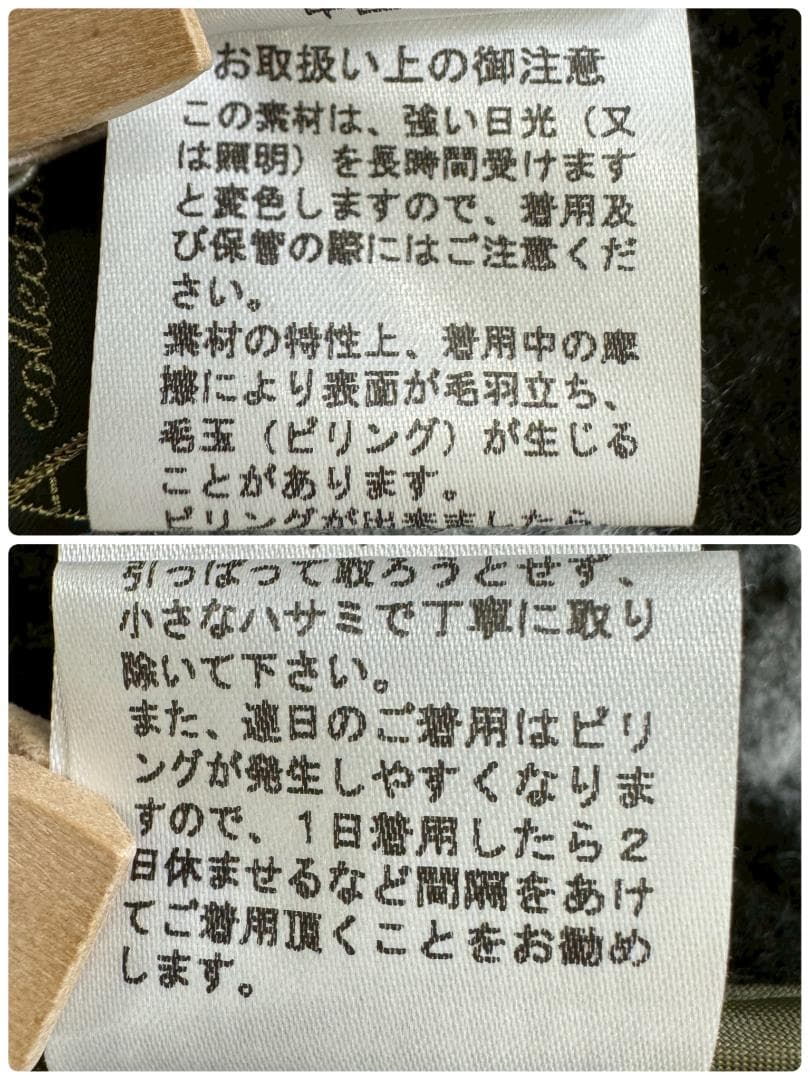 お取扱い上の御注意
この素材は、強い日光（又
は照明）を長時間受けます
と変色しますので、着用及
び保管の際にはご注意くだ
さい。
素材の特性上、着用中の摩
擦により表面が毛羽立ち、
毛玉（ピリング）が生じる
ことがあります。
ピリングが出来ましたら
collection
引っぱって取ろうとせず、
小さなハサミで丁寧に取り
除いて下さい。
また、連日のご着用はピリ
ングが発生しやすくなりま
すので、1日着用したら2
日休ませるなど間隔をあけ
てご着用頂くことをお勧め
します。